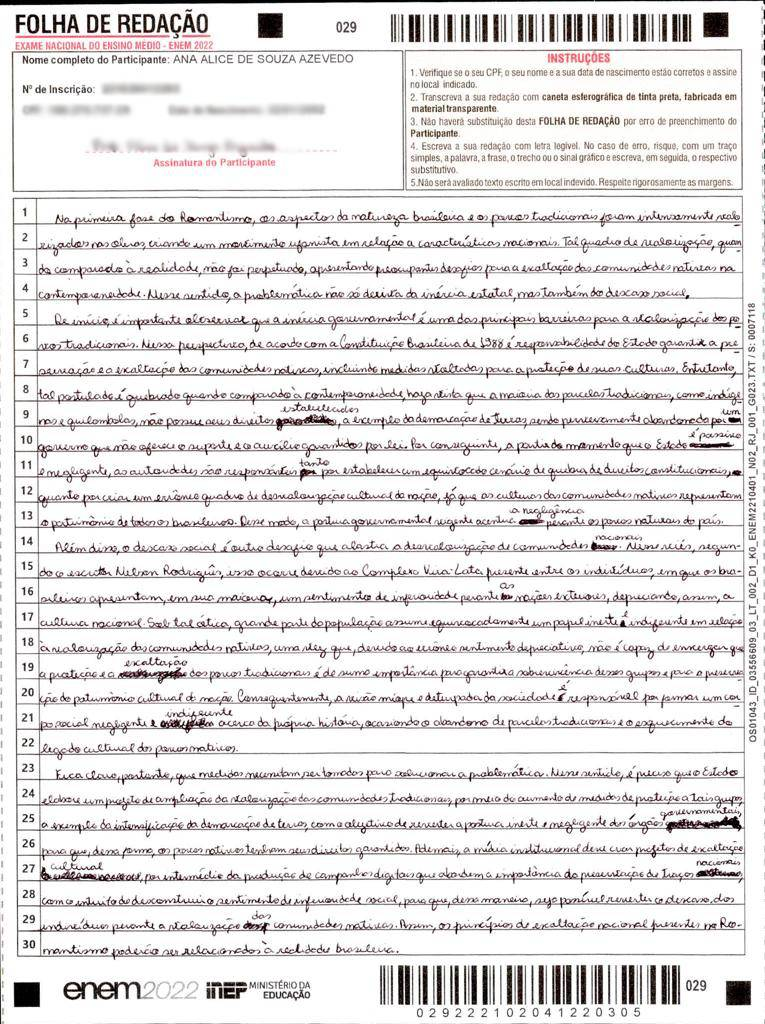 FOLHA DE REDAÇÃO
EXAME NACIONAL DO ENSINO MÉDIO - ENEM 2022
029
Nome completo do Participante: ANA ALICE DE SOUZA AZEVEDO
Nº de Inscrição:
Assinatura do Participante
INSTRUÇÕES
1. Verifique se o seu CPF, o seu nome e a sua data de nascimento estão corretos e assine
no local indicado.
2. Transcreva a sua redação com caneta esferográfica de tinta preta, fabricada em
material transparente.
3. Não haverá substituição desta FOLHA DE REDAÇÃO por erro de preenchimento do
Participante.
4. Escreva a sua redação com letra legível. No caso de erro, risque, com um traço
simples, a palavra, a frase, o trecho ou o sinal gráfico e escreva, em seguida, o respectivo
substitutivo.
5.Não será avaliado texto escrito em local indevido. Respeite rigorosamente as margens.
1 Na primeira fase do Romantismo, os aspectos da natureza brasileira e os povos tradicionais foram intensamente valo-
2 rizados nas obras, criando um movimento ufanista em relação a características nacionais. Tal quadro de valorização, quan-
3 do comparado à realidade, não foi perpetuado, apresentando preocupantes desafios para a exaltação das comunidades nativas na
4 contemporaneidade. Nesse sentido, a problemática não só deriva da inércia estatal, mas também do descaso social.
5 De início, é importante observar que a inércia governamental é uma das principais barreiras para a valorização dos po-
6 vos tradicionais. Nessa perspectiva, de acordo com a Constituição Brasileira de 1988 é responsabilidade do Estado garantir a pre-
7 servação e a exaltação das comunidades nativas, incluindo medidas voltadas para a proteção de suas culturas. Entretanto,
8 tal postulado é quebrado quando comparado à contemporaneidade, haja vista que a maioria das parcelas tradicionais, como indíge-
9 nas e quilombolas, não possui seus direitos estabelecidos, a exemplo da demarcação de terras, sendo perversamente abandonada por um
10 governo que não oferece o suporte e o auxílio garantidos por lei. Por conseguinte, a partir do momento que o Estado é passivo
11 e negligente, as autoridades são responsáveis tanto por estabelecer um equivocado cenário de quebra de direitos constitucionais,
12 quanto por criar um errôneo quadro de desvalorização cultural da nação, já que as culturas das comunidades nativas representam
13 o patrimônio de todos os brasileiros. Desse modo, a postura governamental vigente acentua a negligência perante os povos naturais do país.
14 Além disso, o descaso social é outro desafio que alastra a desvalorização de comunidades nacionais. Nesse viés, segun-
15 do o escritor Nelson Rodrigues, isso ocorre devido ao Complexo Vira-Lata presente entre os indivíduos, em que os bra-
16 sileiros apresentam, em sua maioria, um sentimento de inferioridade perante as nações exteriores, depreciando, assim, a
17 cultura nacional. Sob tal ótica, grande parte da população assume equivocadamente um papel inerte e indiferente em relação
18 à valorização das comunidades nativas, uma vez que, devido ao errôneo sentimento depreciativo, não é capaz de enxergar que
19 a proteção e a exaltação dos povos tradicionais é de suma importância para garantir a sobrevivência desses grupos e para a preserva-
20 ção do patrimônio cultural da nação. Consequentemente, a visão míope e deturpada da sociedade é responsável por formar um cor-
21 po social negligente e indiferente acerca da própria história, ocasionando o abandono de parcelas tradicionais e o esquecimento do
22 legado cultural dos povos nativos.
23 Fica claro, portanto, que medidas necessitam ser tomadas para solucionar a problemática. Nesse sentido, é preciso que o Estado
24 elabore um projeto de ampliação da valorização das comunidades tradicionais, por meio do aumento de medidas de proteção a tais grupos,
25 a exemplo da intensificação da demarcação de terras, com o objetivo de reverter a postura inerte e negligente dos órgãos governamentais,
26 para que, dessa forma, os povos nativos tenham seus direitos garantidos. Ademais, a mídia institucional deve criar projetos de exaltação
27 cultural, por intermédio da produção de campanhas digitais que abordem a importância da preservação de traços nacionais,
28 com o intuito de desconstruir o sentimento de inferioridade social, para que, dessa maneira, seja possível reverter o descaso dos
29 indivíduos perante a valorização das comunidades nativas. Assim, os princípios de exaltação nacional presentes no Ro-
30 mantismo poderão ser relacionados à realidade brasileira.
OS01043_ID_03556609_03_LT_002_D1_K0_ENEM2210401_N02_RJ_001_G023.TXT / S: 0007118
enem2022 INEP MINISTÉRIO DA
EDUCAÇÃO
029
0292221020412203​05